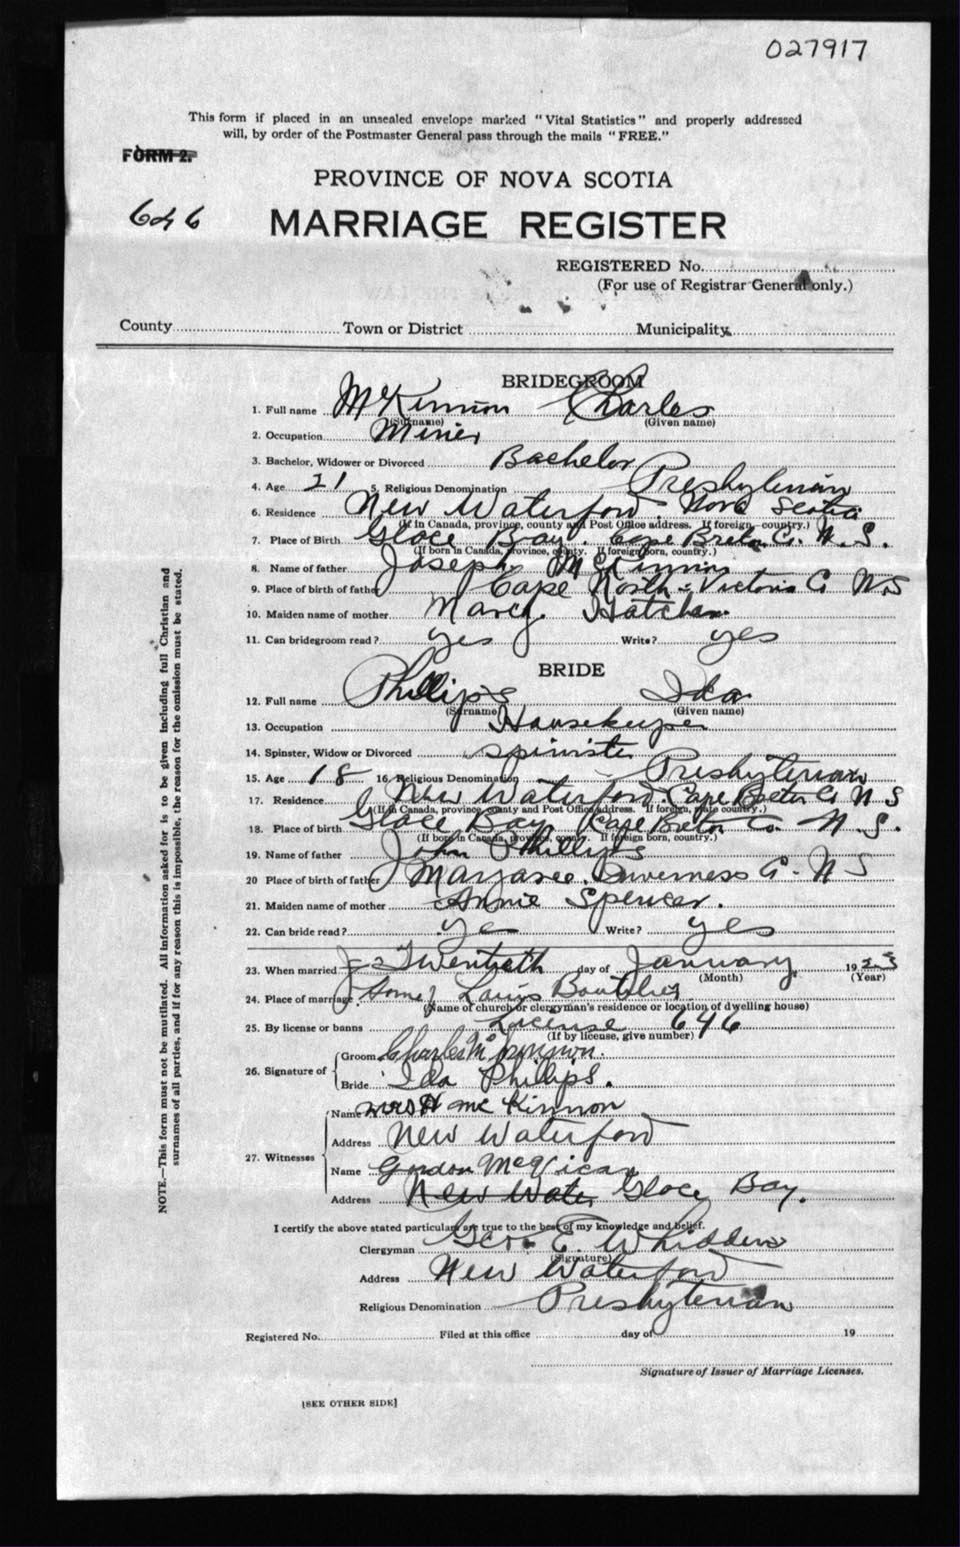 027917
This form if placed in an unsealed envelope marked "Vital Statistics" and properly addressed
will, by order of the Postmaster General pass through the mails "FREE."
FORM 2.
PROVINCE OF NOVA SCOTIA
646 MARRIAGE REGISTER
REGISTERED No.
(For use of Registrar General only.)
County Town or District Municipality
BRIDEGROOM
1. Full name McKinnon Charles
(Surname) (Given name)
2. Occupation Miner
3. Bachelor, Widower or Divorced Bachelor
4. Age 21 5. Religious Denomination Presbyterian
6. Residence New Waterford. Nova Scotia
(If in Canada, province, county and Post Office address. If foreign, country.)
7. Place of Birth Glace Bay. Cape Breton Co. N.S.
(If born in Canada, province, county. If foreign born, country.)
8. Name of father Joseph McKinnon
9. Place of birth of father Cape North - Victoria Co N.S
10. Maiden name of mother Hatcher
11. Can bridegroom read? yes Write? yes
BRIDE
12. Full name Phillips Ida
(Surname) (Given name)
13. Occupation Housekeeper
14. Spinster, Widow or Divorced spinster
15. Age 18 16. Religious Denomination Presbyterian
17. Residence New Waterford. Cape Breton Co N S
(If in Canada, province, county and Post Office address. If foreign, state country.)
18. Place of birth Glace Bay Cape Breton Co. N. S.
(If born in Canada, province, county. If foreign born, country.)
19. Name of father John Phillips
20 Place of birth of father Margaree. Inverness Co. N S
21. Maiden name of mother Annie Spencer.
22. Can bride read? yes Write? yes
23. When married Twentieth day of January 1923
(Month) (Year)
24. Place of marriage Home of
(Name of church or clergyman's residence or location of dwelling house)
25. By license or banns License 646
(If by license, give number)
26. Signature of Groom Charles McKinnon.
Bride Ida Phillips.
27. Witnesses Name Mrs H McKinnon
Address New Waterford
Name Gordon McVicar
Address New Water Glace Bay.
I certify the above stated particulars are true to the best of my knowledge and belief.
Clergyman Geo. E. Whidden
(Signature)
Address New Waterford
Religious Denomination Presbyterian
Registered No. Filed at this office day of 19
Signature of Issuer of Marriage Licenses.
[SEE OTHER SIDE]
NOTE.—This form must not be mutilated. All information asked for is to be given including full Christian and
surnames of all parties, and if for any reason this is impossible, the reason for the omission must be stated.